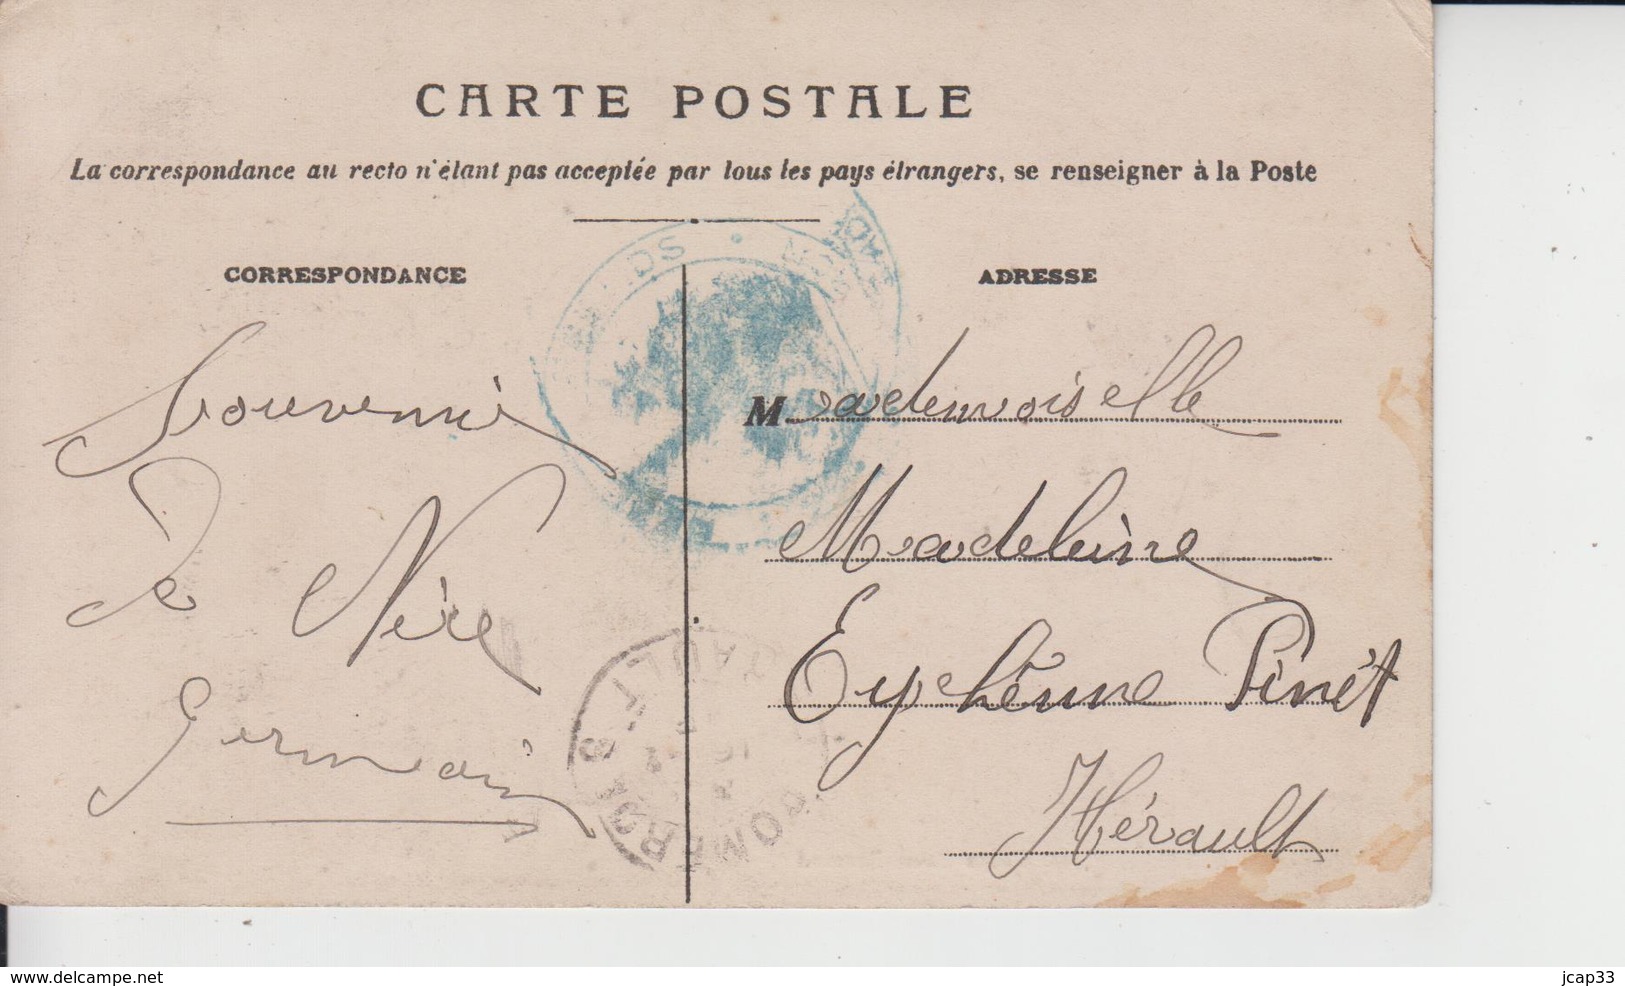 CARTE POSTALE
La correspondance au recto n'étant pas acceptée par tous les pays étrangers, se renseigner à la Poste
CORRESPONDANCE
Souvenir
de
Germain
ADRESSE
Mademoiselle
Madeleine
Eychenne Pinet
Hérault
POMEROLS
delcampe.net
jcap33